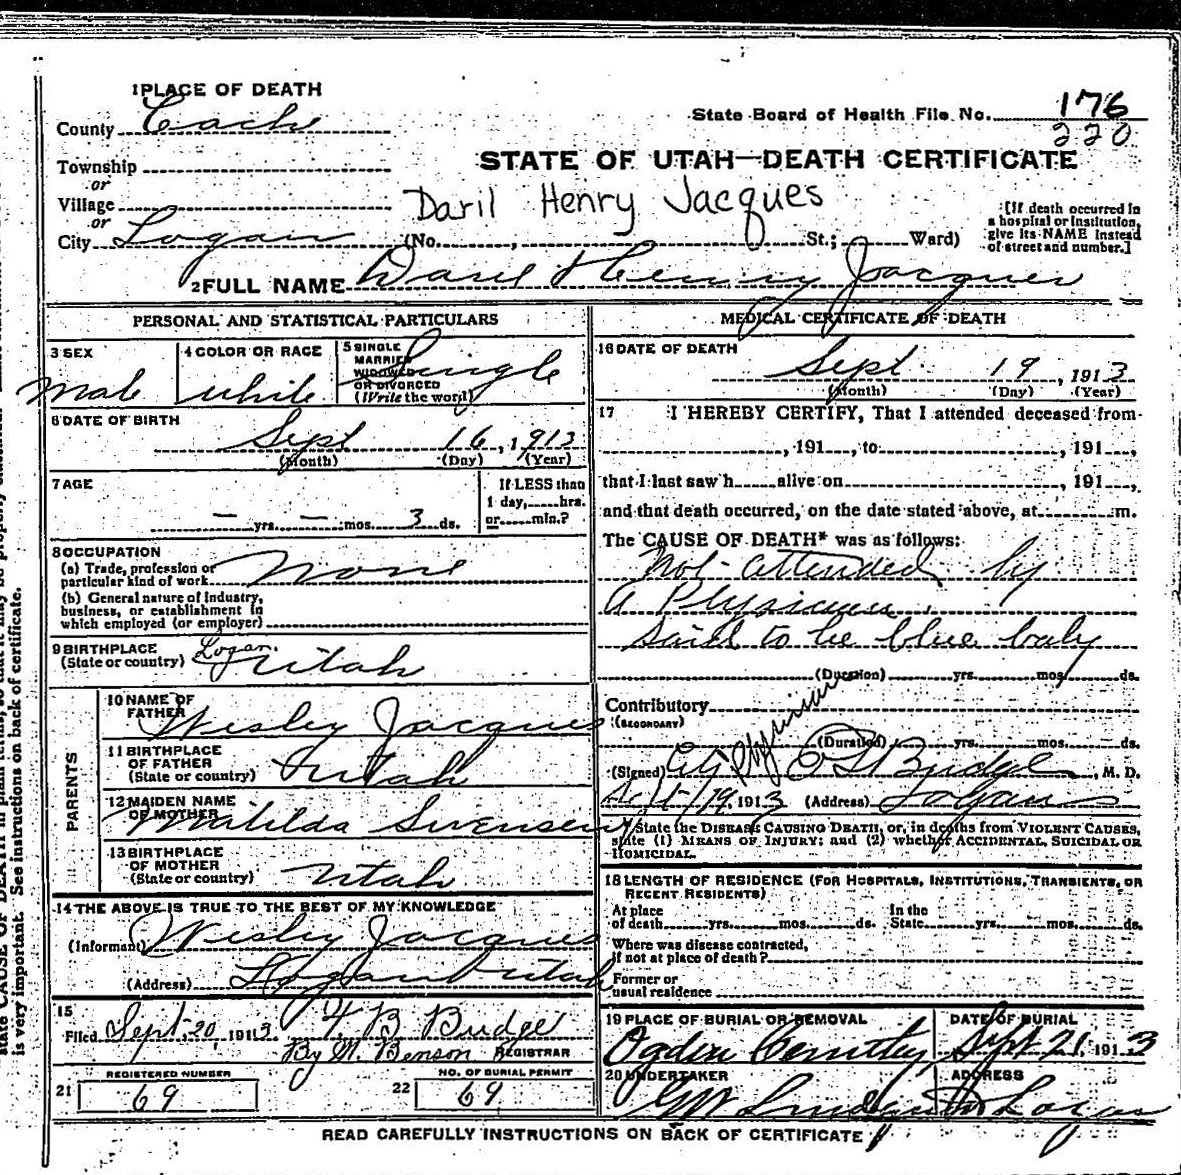 1 PLACE OF DEATH
County Cache
State Board of Health File No. 176
220
Township
or
STATE OF UTAH—DEATH CERTIFICATE
Village
or
Daril Henry Jacques
City Logan (No. , St.; Ward)
[If death occurred in
a hospital or institution,
give its NAME instead
of street and number.]
2 FULL NAME Daril Henry Jacques
PERSONAL AND STATISTICAL PARTICULARS
3 SEX
male
4 COLOR OR RACE
white
5 SINGLE
MARRIED
WIDOWED
OR DIVORCED
(Write the word)
Single
6 DATE OF BIRTH
Sept 16, 1913
(Month) (Day) (Year)
7 AGE
— yrs. — mos. 3 ds.
If LESS than
1 day, hrs.
or min.?
8 OCCUPATION
(a) Trade, profession or
particular kind of work None
(b) General nature of industry,
business, or establishment in
which employed (or employer)
9 BIRTHPLACE
(State or country) Logan. Utah
PARENTS
10 NAME OF
FATHER Wesley Jacques
11 BIRTHPLACE
OF FATHER
(State or country) Utah
12 MAIDEN NAME
OF MOTHER Matilda Swensen
13 BIRTHPLACE
OF MOTHER
(State or country) Utah
14 THE ABOVE IS TRUE TO THE BEST OF MY KNOWLEDGE
(Informant) Wesley Jacques
(Address) Logan Utah
15
Filed Sept 20, 1913 F B Budge
By M. Benson REGISTRAR
REGISTERED NUMBER
21 69
NO. OF BURIAL PERMIT
22 69
MEDICAL CERTIFICATE OF DEATH
16 DATE OF DEATH
Sept 19, 1913
(Month) (Day) (Year)
17 I HEREBY CERTIFY, That I attended deceased from
, 191 , to , 191 ,
that I last saw h alive on , 191 ,
and that death occurred, on the date stated above, at m.
The CAUSE OF DEATH* was as follows:
Not attended by
a Physician.
Said to be blue baby
(Duration) yrs. mos. ds.
Contributory
(SECONDARY)
(Duration) yrs. mos. ds.
(Signed) Physician Budge, M. D.
Sept 19, 1913 (Address) Logan
*State the DISEASE CAUSING DEATH, or, in deaths from VIOLENT CAUSES,
state (1) MEANS OF INJURY; and (2) whether ACCIDENTAL, SUICIDAL OR
HOMICIDAL.
18 LENGTH OF RESIDENCE (FOR HOSPITALS, INSTITUTIONS, TRANSIENTS, OR
RECENT RESIDENTS)
At place
of death yrs. mos. ds.
In the
State yrs. mos. ds.
Where was disease contracted,
if not at place of death?
Former or
usual residence
19 PLACE OF BURIAL OR REMOVAL
Ogden Cemetery
DATE OF BURIAL
Sept 21, 1913
20 UNDERTAKER
ADDRESS
Logan
READ CAREFULLY INSTRUCTIONS ON BACK OF CERTIFICATE
is very important. See instructions on back of certificate.